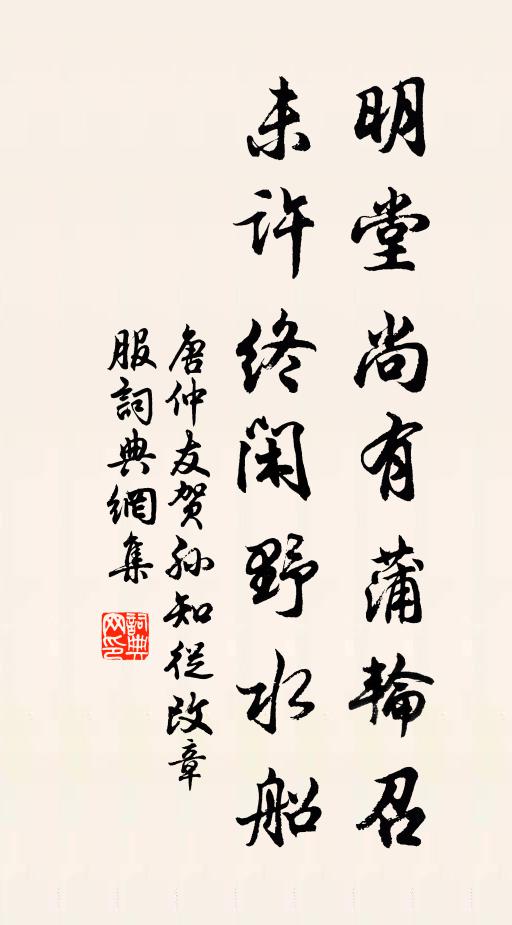 明堂尚有蒲輪召
未許終閑野水船
唐仲友贺孙知從改章
服詞典網集
詞典网印